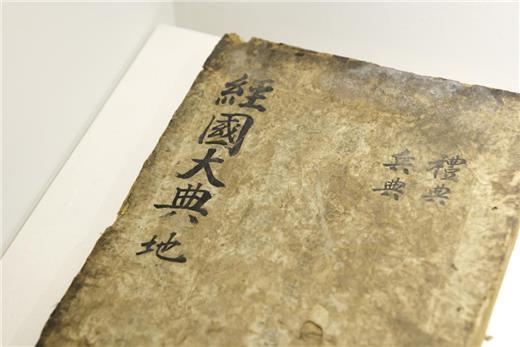 經國大典 地
禮典
兵典